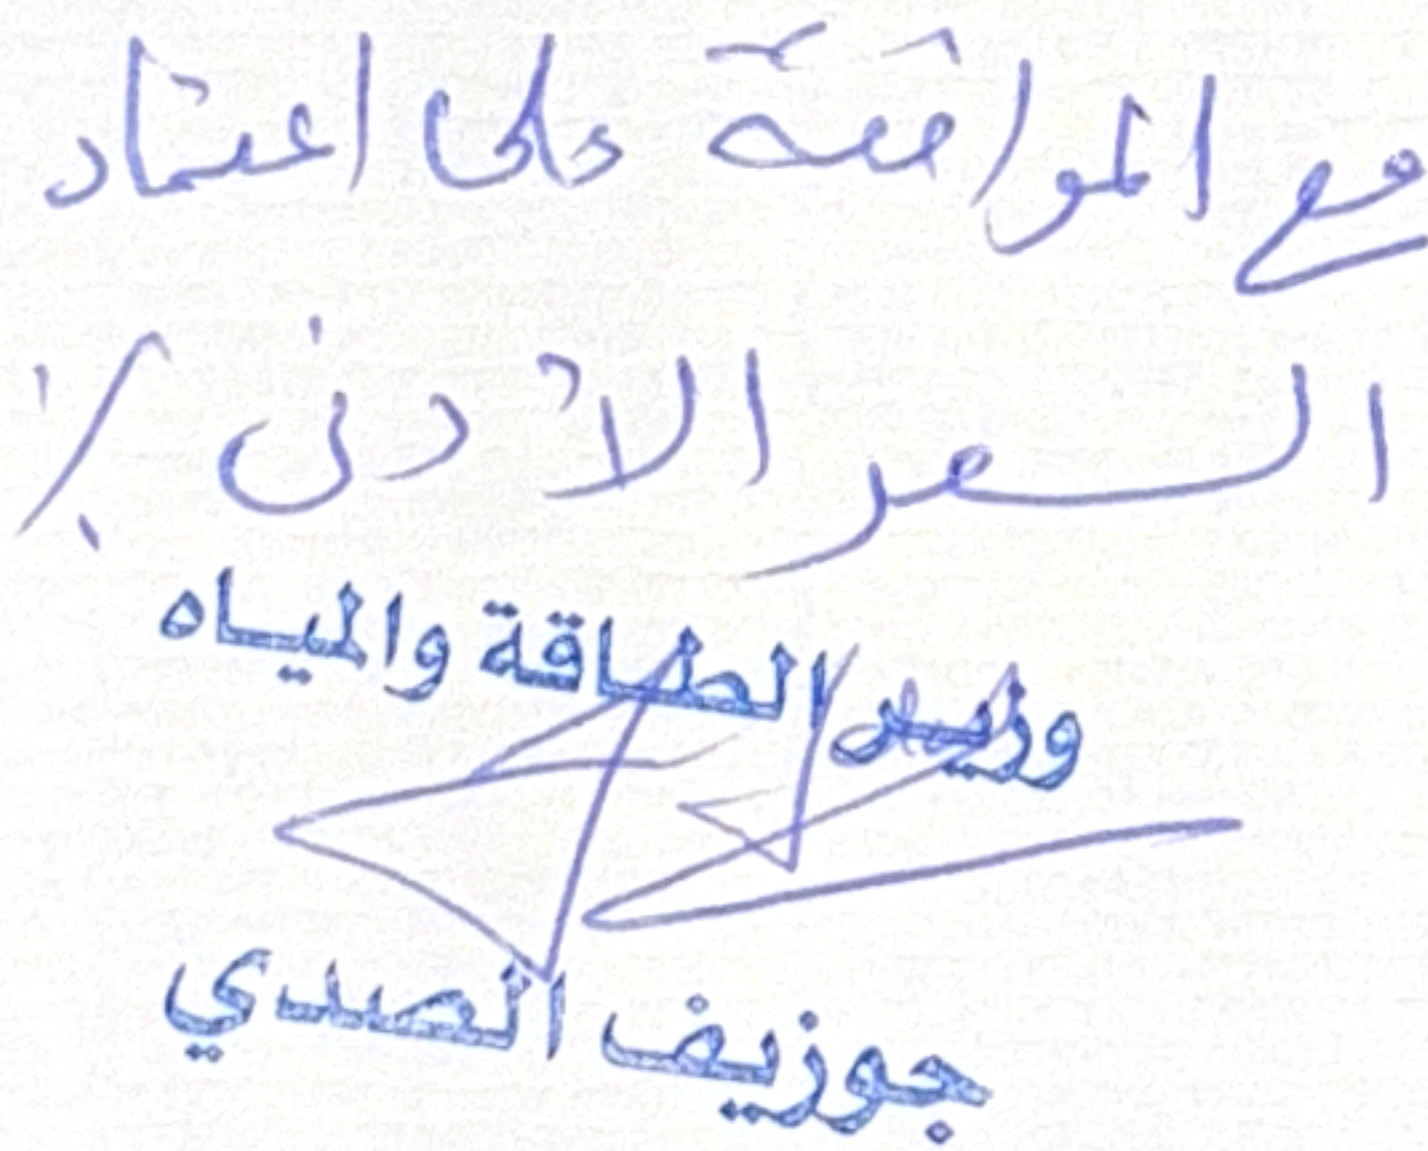 مع الموافقة على اعتماد
السعر الأدنى ./.
وزير الطاقة والمياه
جوزيف الصدي